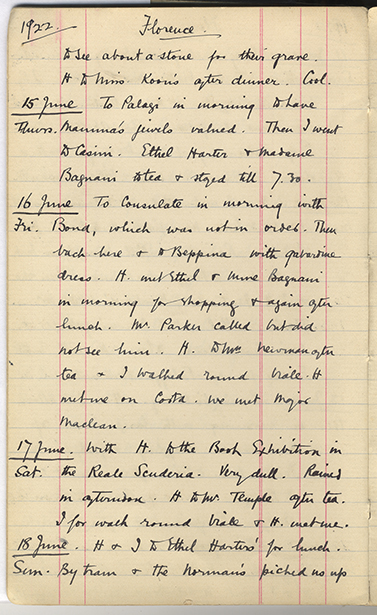 1922 Florence.
to see about a stone for their grave.
H to Miss Koon's after dinner. Cool.
15 June To Palagi in morning to have
Thurs. Mamma's jewels valued. Then I went
to Casini. Ethel Harter & Madame
Bagnani to tea & stayed till 7.30.
16 June To Consulate in morning with
Fri. Bond, which was not in order. Then
back here & to Beppina with gabardine
dress. H. met Ethel & Mme Bagnani
in morning for shopping & again after
lunch. Mr. Parker called but did
not see him. H. to Mrs Newman after
tea & I walked round Viale. H
met me on Costa. We met Major
Maclean.
17 June. With H. to the Book Exhibition in
Sat. the Reale Scuderia. Very dull. Rained
in afternoon. H to Mrs. Temple after tea.
I for walk round Viale & H. met me.
18 June. H & I to Ethel Harter's for lunch.
Sun. By tram & the Norman's picked us up